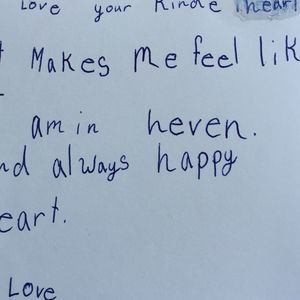 Love your Kinde heart
Makes me feel lik
am in heven.
nd always happy
eart.
Love